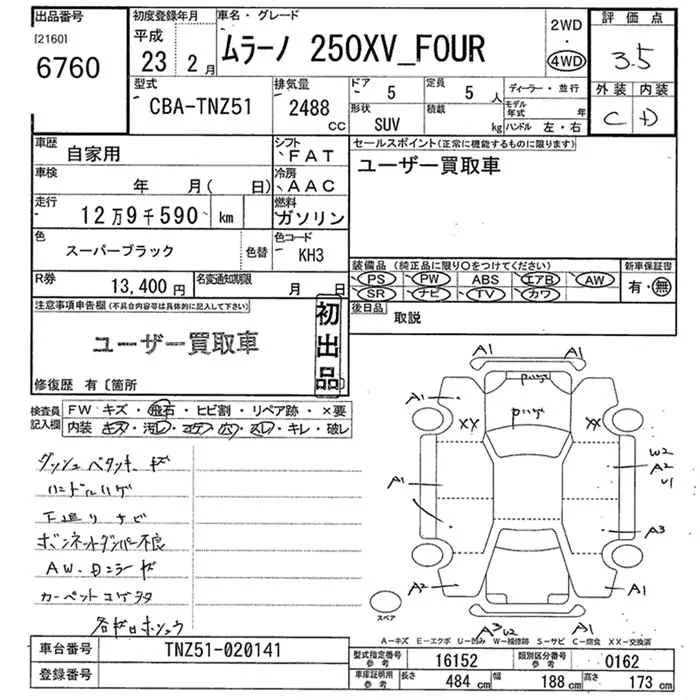 出品番号
[2160]
6760
初度登録年月
平成
23 2月
車名・グレード
ムラーノ 250XV_FOUR
2WD
・
4WD
評価点
3.5
外装 内装
C D
型式
CBA-TNZ51
排気量
2488
CC
ドア
5
定員
5 人
形状
SUV
積載
kg
ディーラー・並行
モデル年式 年
ハンドル 左・右
車歴
自家用
シフト
FAT
車検
年 月( 日)
冷房
AAC
走行
12万9千590 km
燃料
ガソリン
色
スーパーブラック
色替
色コード
KH3
R券
13,400円
名変通知期限
月 日
セールスポイント(正常に機能するものに限ります)
ユーザー買取車
装備品 (純正品に限り○をつけてください)
PS PW ABS エアB AW
SR ナビ TV カワ
新車保証書
有・無
後日品
取説
注意事項申告欄(不具合内容等は具体的に記入して下さい)
ユーザー買取車
初出品
修復歴 有〔箇所
検査員記入欄
FW キズ・飛石・ヒビ割・リペア跡・×要
内装 キズ・汚レ・コゲ・穴・スレ・キレ・破レ
ダッシュベタツキ キズ
ハンドルハゲ
下廻りサビ
ボンネットダンパー不良
AW・Dミラーキズ
カーペットコゲ
A1 A1
A1 A1
XX XX
W2
A2
U1
A1
A3
A2 A1
A3 W2
スペア
A−キズ E−エクボ U−凹み W−補修跡 S−サビ C−腐食 XX−交換済
車台番号
TNZ51-020141
登録番号
型式指定番号
参考
16152
類別区分番号
参考
0162
車庫証明用
参考
長さ 484 cm 幅 188 cm 高さ 173 cm